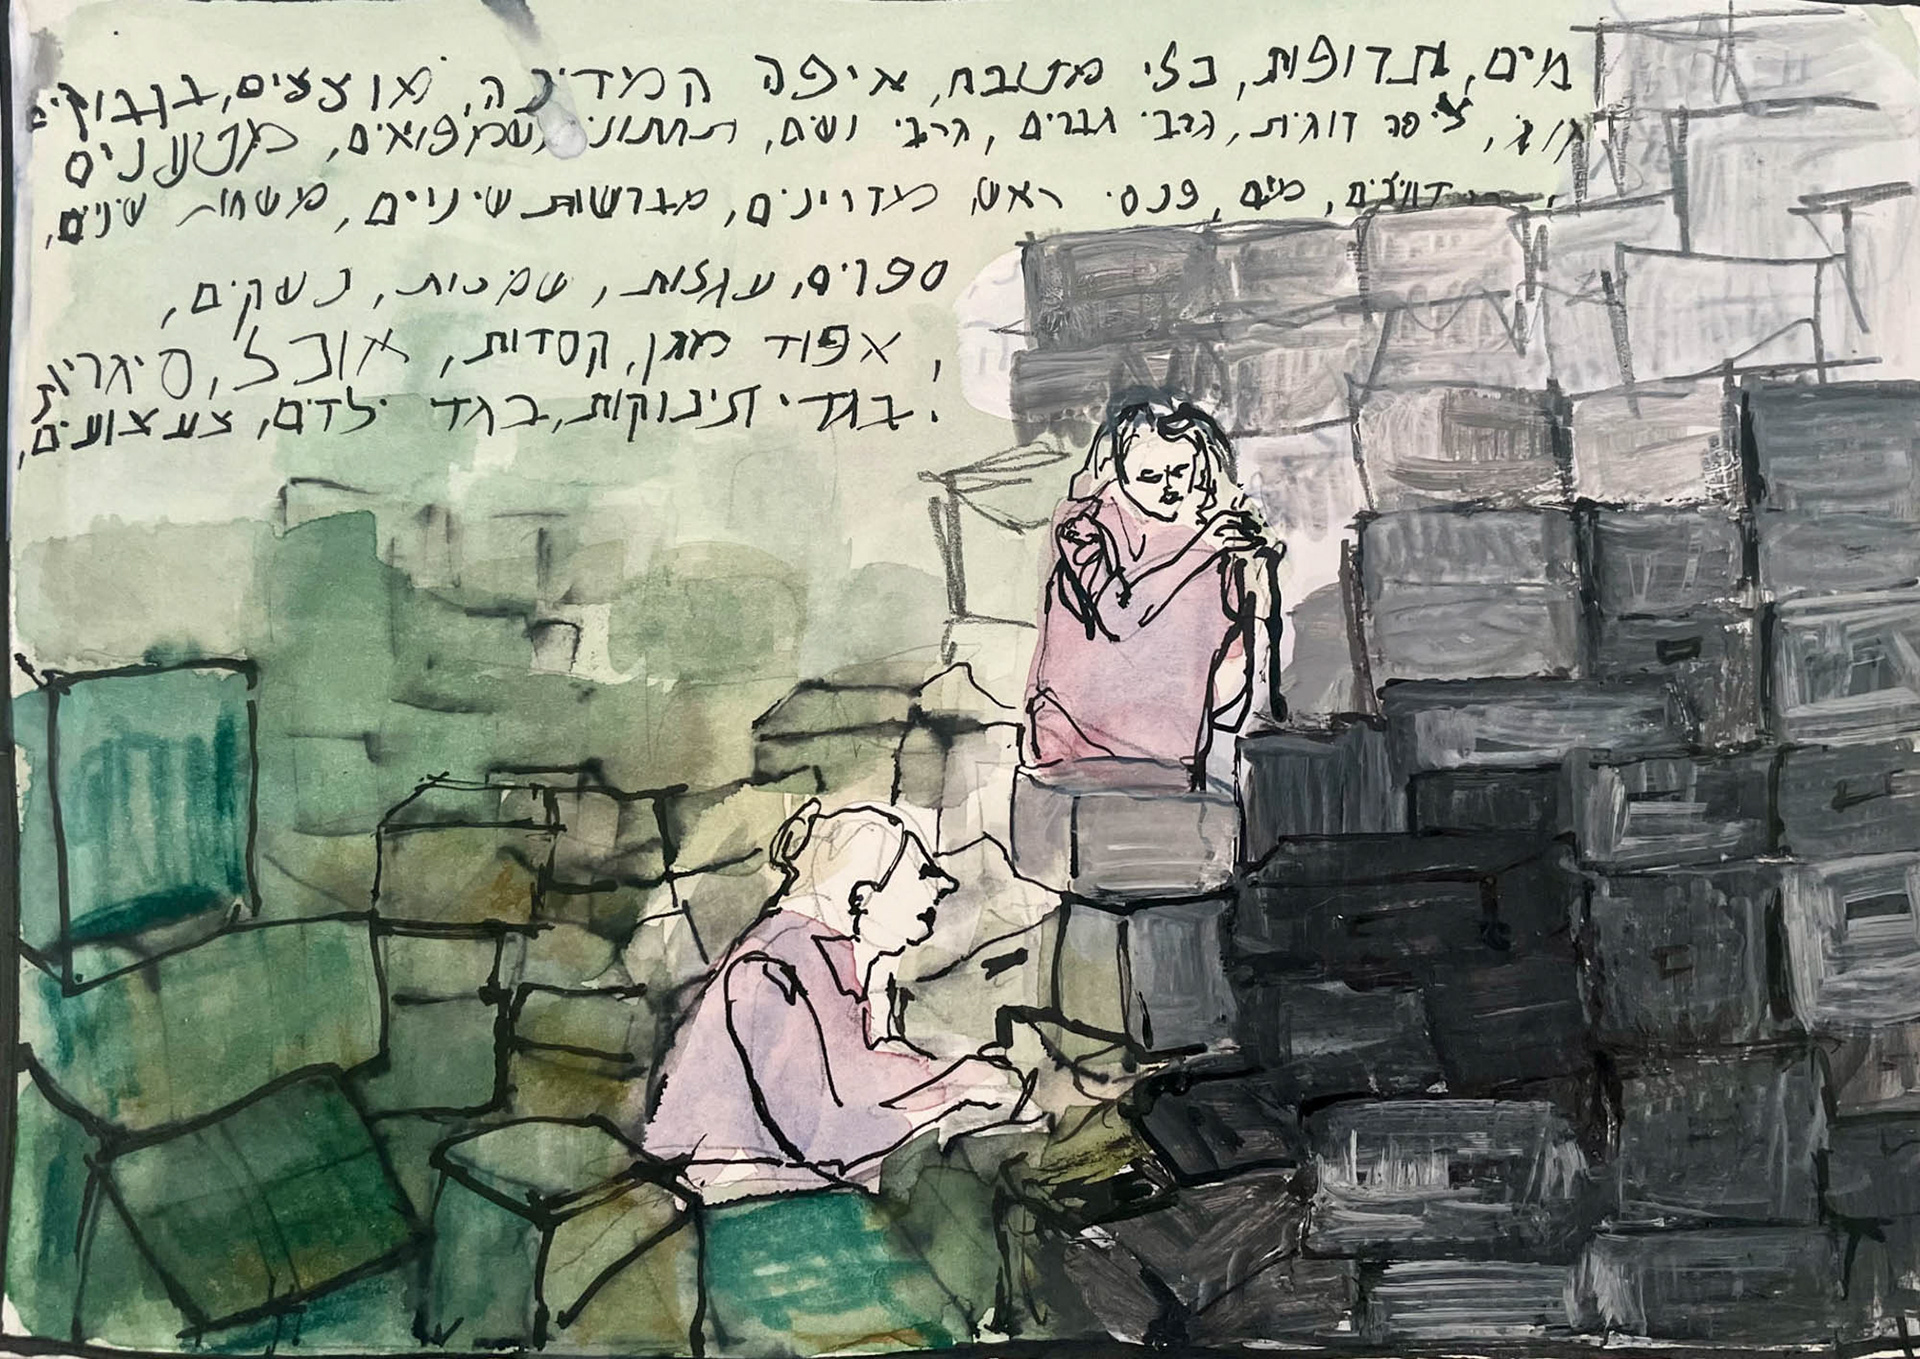 מים, תרופות, כלי מטבח, איפה המדינה, מוצצים, בקבוקים
זוג, ציפה זוגית, גרבי גברים, גרבי נשים, תחתונים, שמפואים, מטענים
מים, פנסי ראש, מזרינים, מברשות שיניים, משחות שינים,
ספרים, עגלות, שמיכות, נשקים,
אפוד מגן, קסדות, אוכל, סיגריות,
בגדי תינוקות, בגדי ילדים, צעצועים,